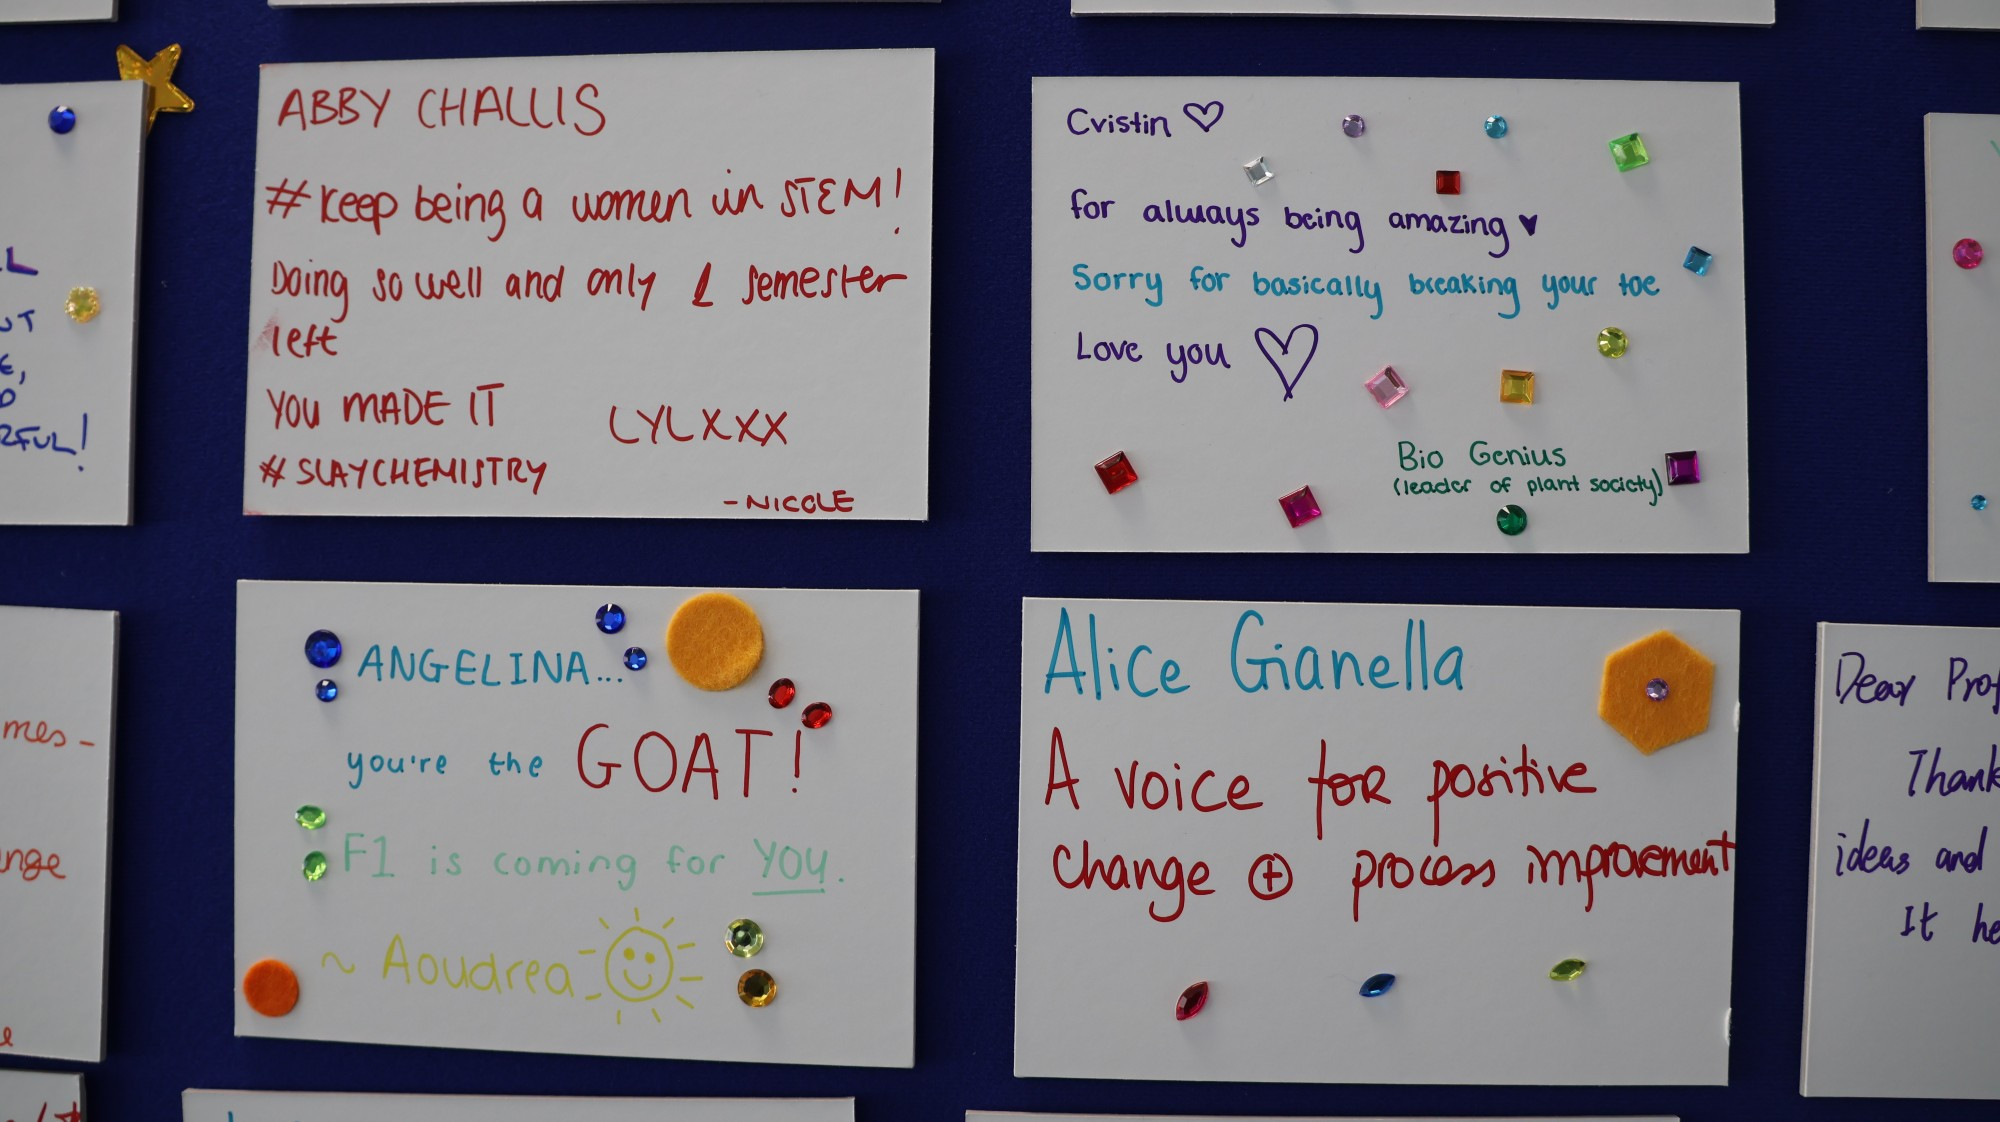 ABBY CHALLIS
#keep being a women in STEM!
Doing so well and only 1 semester
left
YOU MADE IT
LYLXXX
#SLAYCHEMISTRY
-NICOLE
Cristin ♡
for always being amazing ♥
Sorry for basically breaking your toe
Love you ♡
Bio Genius
(leader of plant society)
ANGELINA...
you're the GOAT!
F1 is coming for YOU.
~ Aoudrea
Alice Gianella
A voice for positive
change ⊕ process improvement
Dear Prof
Thank
ideas and
It he